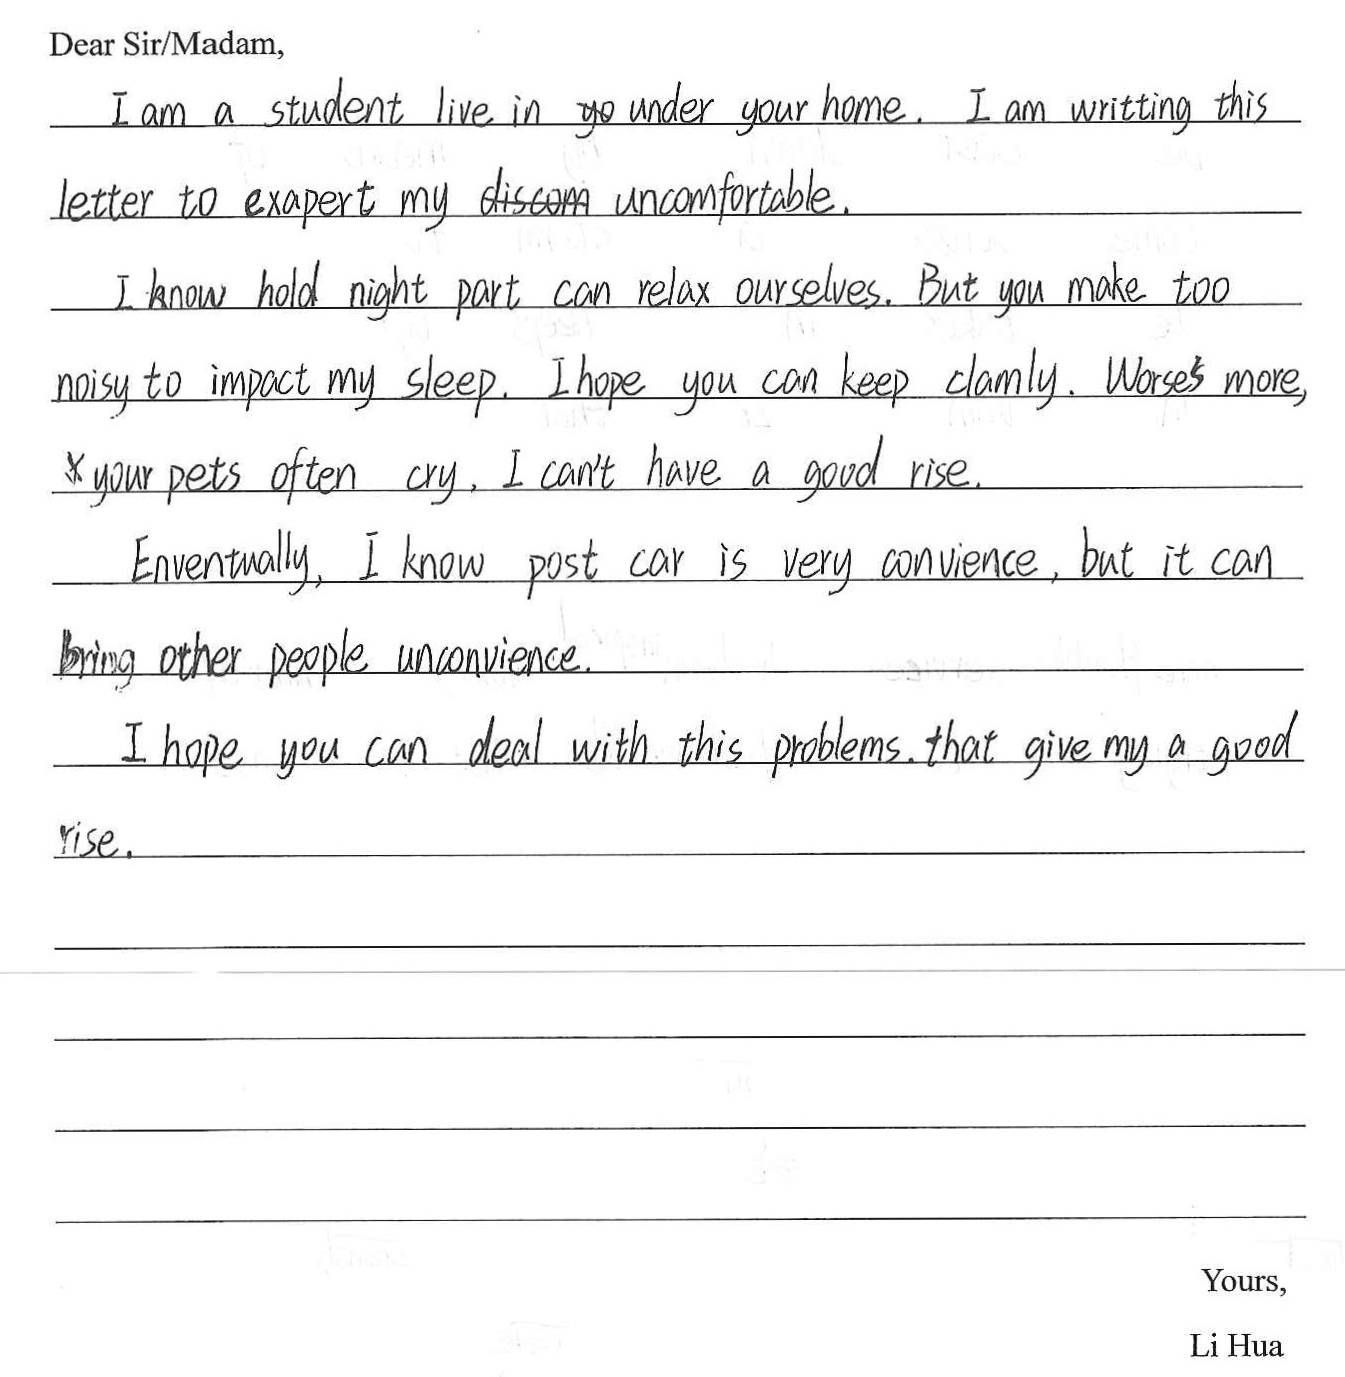 Dear Sir/Madam,
I am a student live in under your home. I am writting this
letter to exapert my uncomfortable.
I know hold night part can relax ourselves. But you make too
noisy to impact my sleep. I hope you can keep clamly. Worse's more,
your pets often cry, I can't have a good rise.
Enventually, I know post car is very convience, but it can
bring other people unconvience.
I hope you can deal with this problems. that give my a good
rise.
Yours,
Li Hua